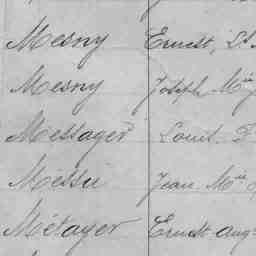 Mesny Ernest, Lt
Mesny Joseph Mie
Messager Louis
Messu Jean Mie
Métayer Ernest Aug